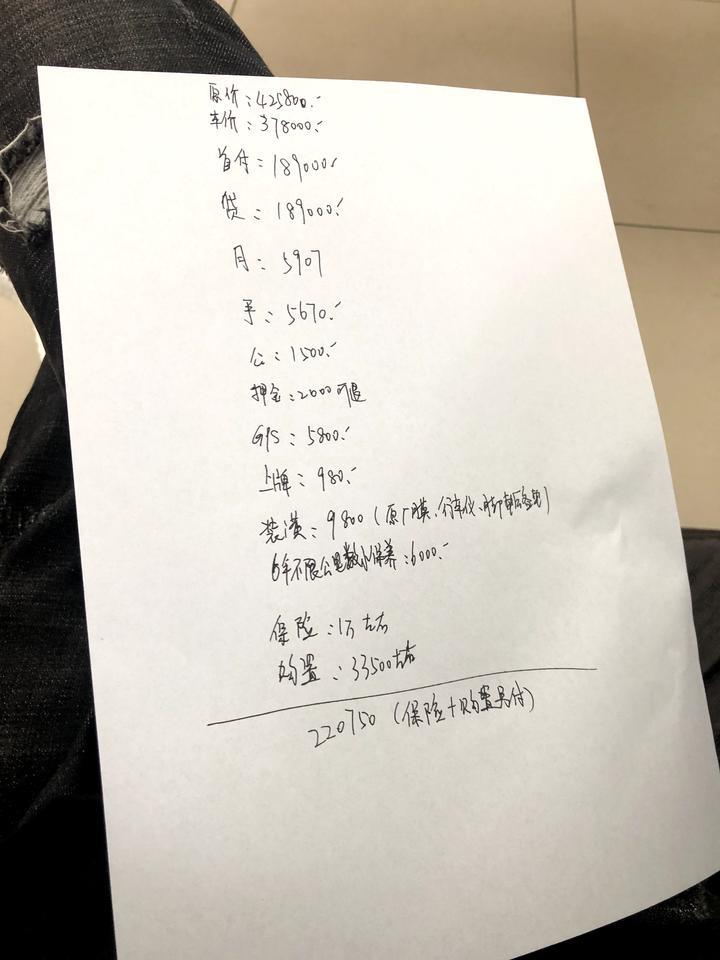 原价:425800.-
车价:378000.-
首付:189000.-
贷:189000.-
月:5907
手:5670.-
公:1500.-
押金:2000可退
GPS:5800.-
上牌:980.-
装潢:9800(原厂膜、行车仪、脚垫
6年不限公里数小保养:6000.-
保险:1万左右
购置:33500左右
220750(保险+购置另付)